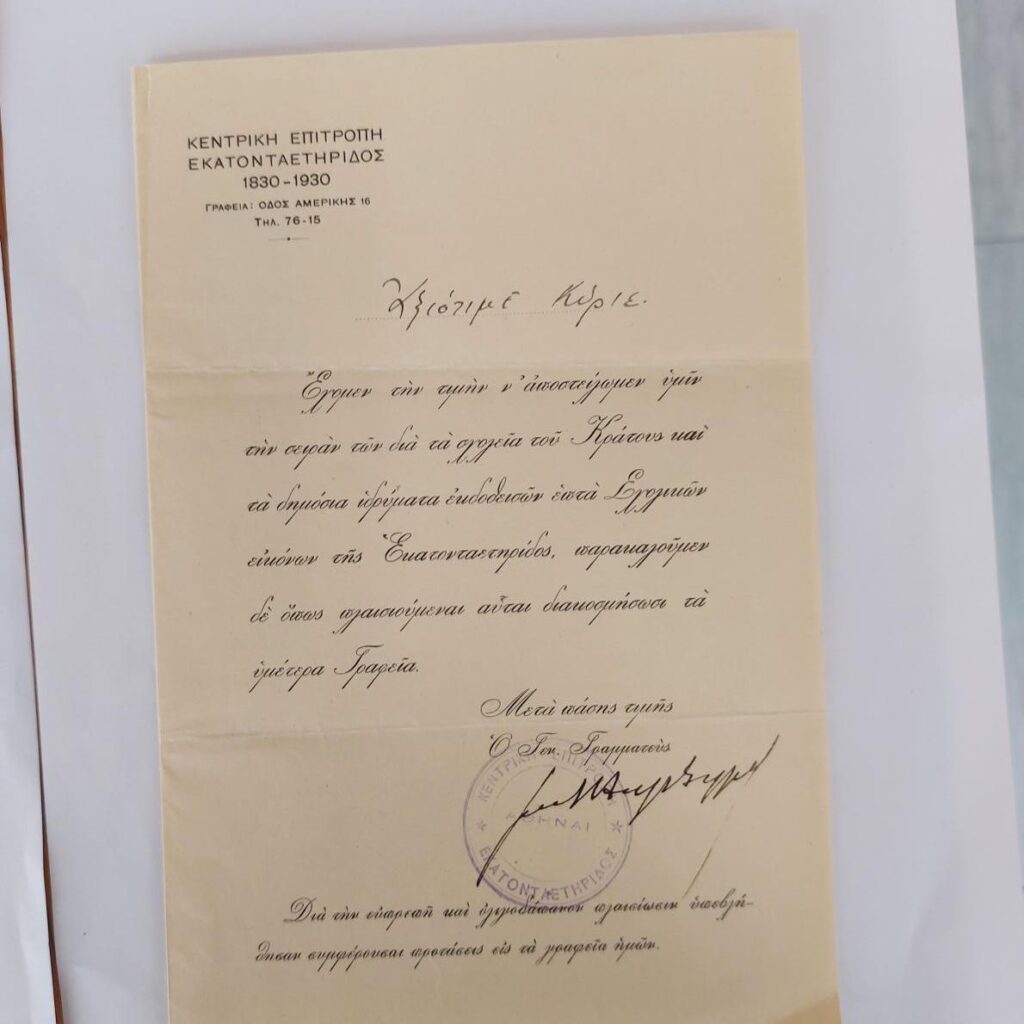 ΚΕΝΤΡΙΚΗ ΕΠΙΤΡΟΠΗ
ΕΚΑΤΟΝΤΑΕΤΗΡΙΔΟΣ
1830-1930
ΓΡΑΦΕΙΑ: ΟΔΟΣ ΑΜΕΡΙΚΗΣ 16
ΤΗΛ. 76-15
Ἀξιότιμε Κύριε.
Ἔχομεν τὴν τιμὴν ν' ἀποστείλωμεν ὑμῖν
τὴν σειρὰν τῶν διὰ τὰ σχολεῖα τοῦ Κράτους καὶ
τὰ δημόσια ἱδρύματα ἐκδοθεισῶν ἑπτὰ Σχολικῶν
εἰκόνων τῆς Ἑκατονταετηρίδος, παρακαλοῦμεν
δὲ ὅπως πλαισιούμεναι αὗται διακοσμήσωσι τὰ
ὑμέτερα Γραφεῖα.
Μετὰ πάσης τιμῆς
Ὁ Γεν. Γραμματεὺς
ΚΕΝΤΡΙΚΗ ΕΠΙΤΡΟΠΗ
ΑΘΗΝΑΙ
ΕΚΑΤΟΝΤΑΕΤΗΡΙΔΟΣ
Διὰ τὴν εὐπρεπῆ καὶ ὀλιγοδάπανον πλαισίωσιν ὑπεβλή-
θησαν συμφέρουσαι προτάσεις εἰς τὰ γραφεῖα ἡμῶν.